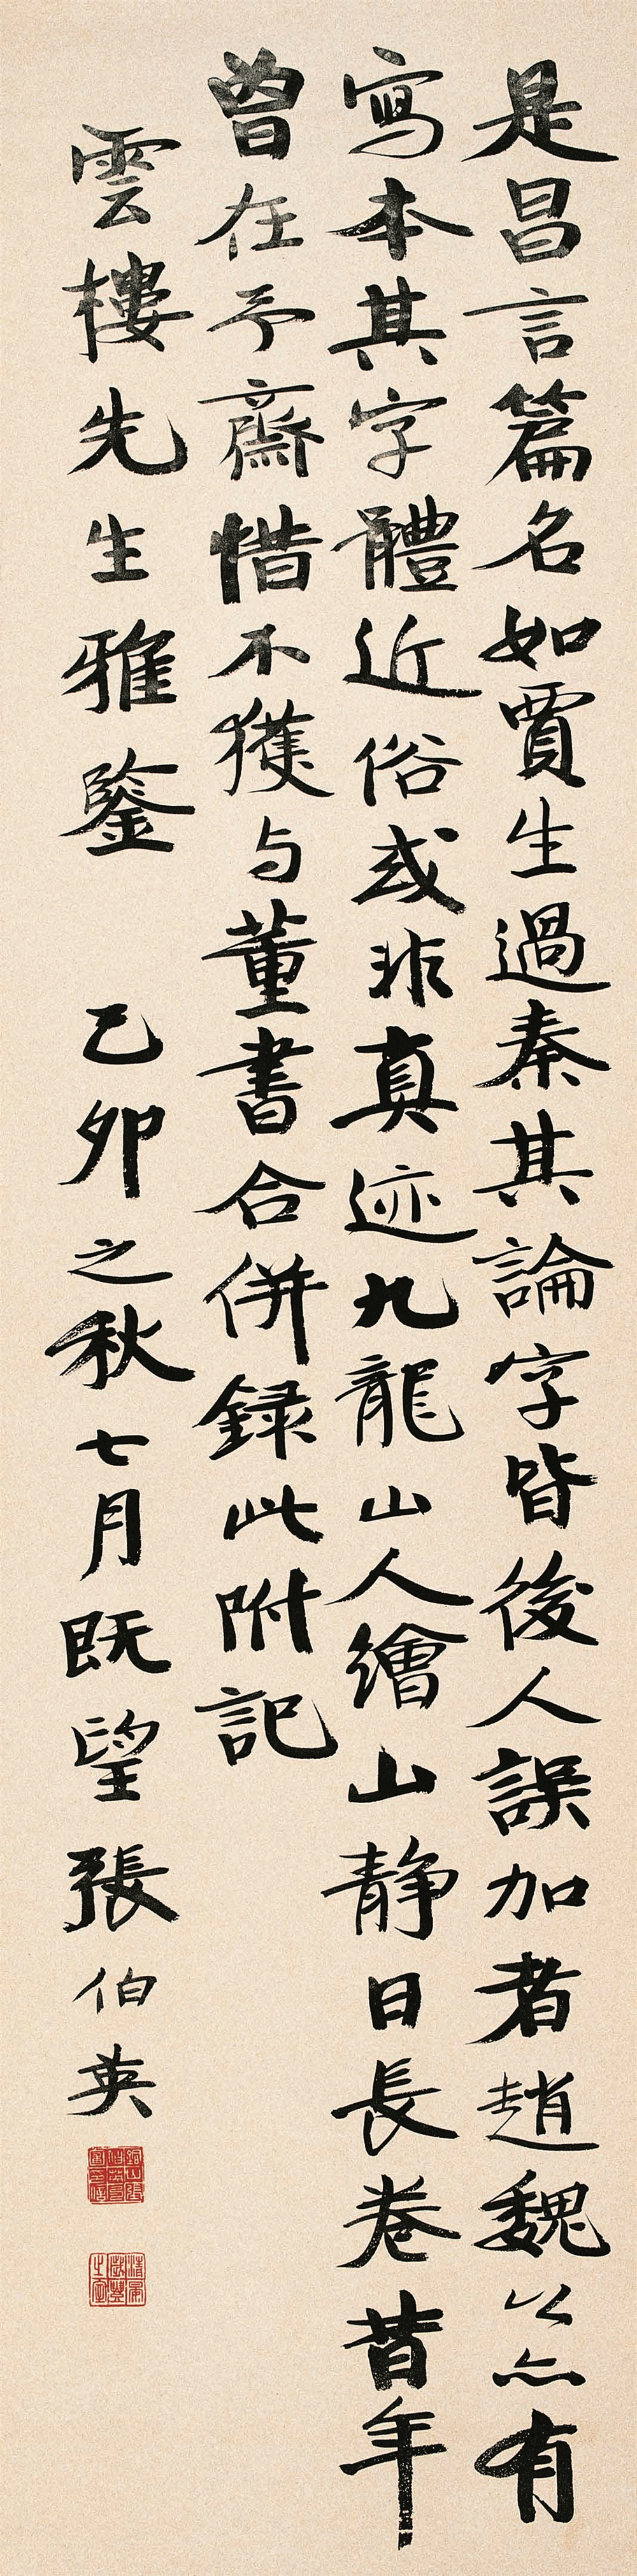 是昌言篇名如賈生過秦其論字皆後人誤加者趙魏公亦有
寫本其字體近俗或非真迹九龍山人繪山靜日長卷昔年
曾在予齋惜不獲与董書合併録此附記
雲樓先生雅鑒 乙卯之秋七月既望張伯英